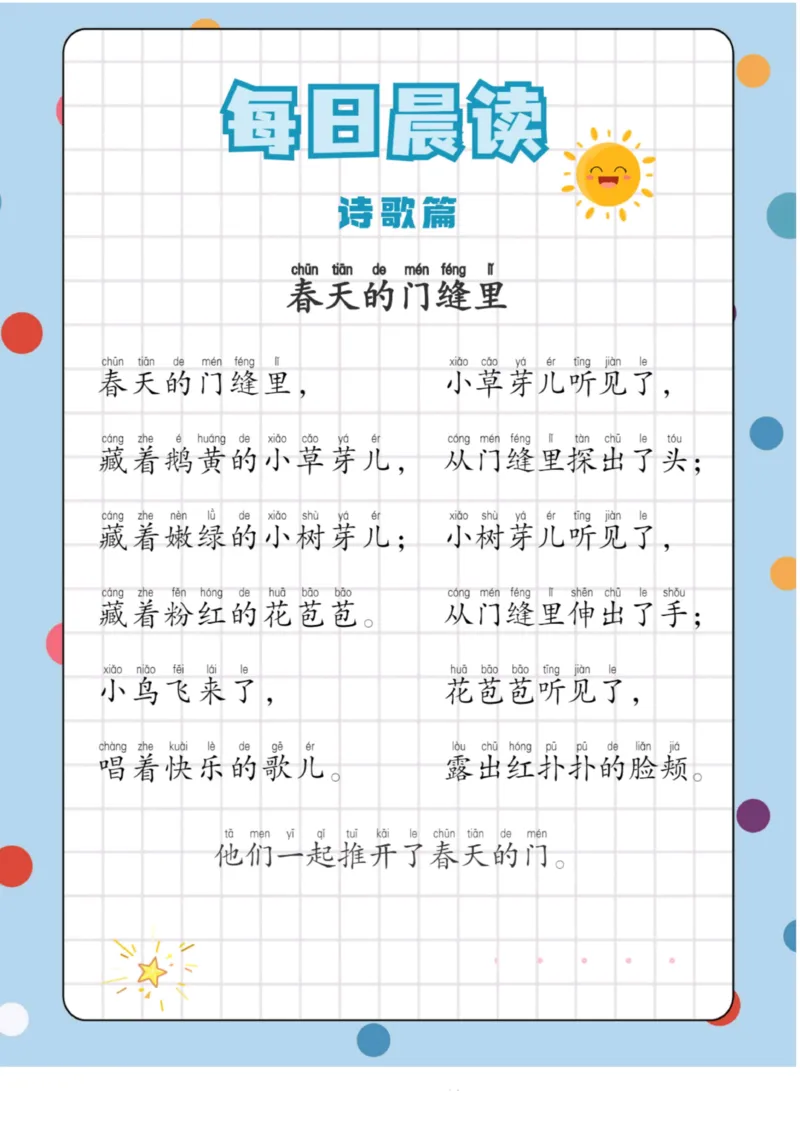 每日晨读
诗歌篇
chūn tiān de mén féng lǐ
春天的门缝里
chūn tiān de mén féng lǐ
春天的门缝里，
cáng zhe é huáng de xiǎo cǎo yá ér
藏着鹅黄的小草芽儿，
cáng zhe nèn lǜ de xiǎo shù yá ér
藏着嫩绿的小树芽儿；
cáng zhe fěn hóng de huā bāo bāo
藏着粉红的花苞苞。
xiǎo niǎo fēi lái le
小鸟飞来了，
chàng zhe kuài lè de gē ér
唱着快乐的歌儿。
xiǎo cǎo yá ér tīng jiàn le
小草芽儿听见了，
cóng mén féng lǐ tàn chū le tóu
从门缝里探出了头；
xiǎo shù yá ér tīng jiàn le
小树芽儿听见了，
cóng mén féng lǐ shēn chū le shǒu
从门缝里伸出了手；
huā bāo bāo tīng jiàn le
花苞苞听见了，
lòu chū hóng pū pū de liǎn jiá
露出红扑扑的脸颊。
tā men yī qǐ tuī kāi le chūn tiān de mén
他们一起推开了春天的门。